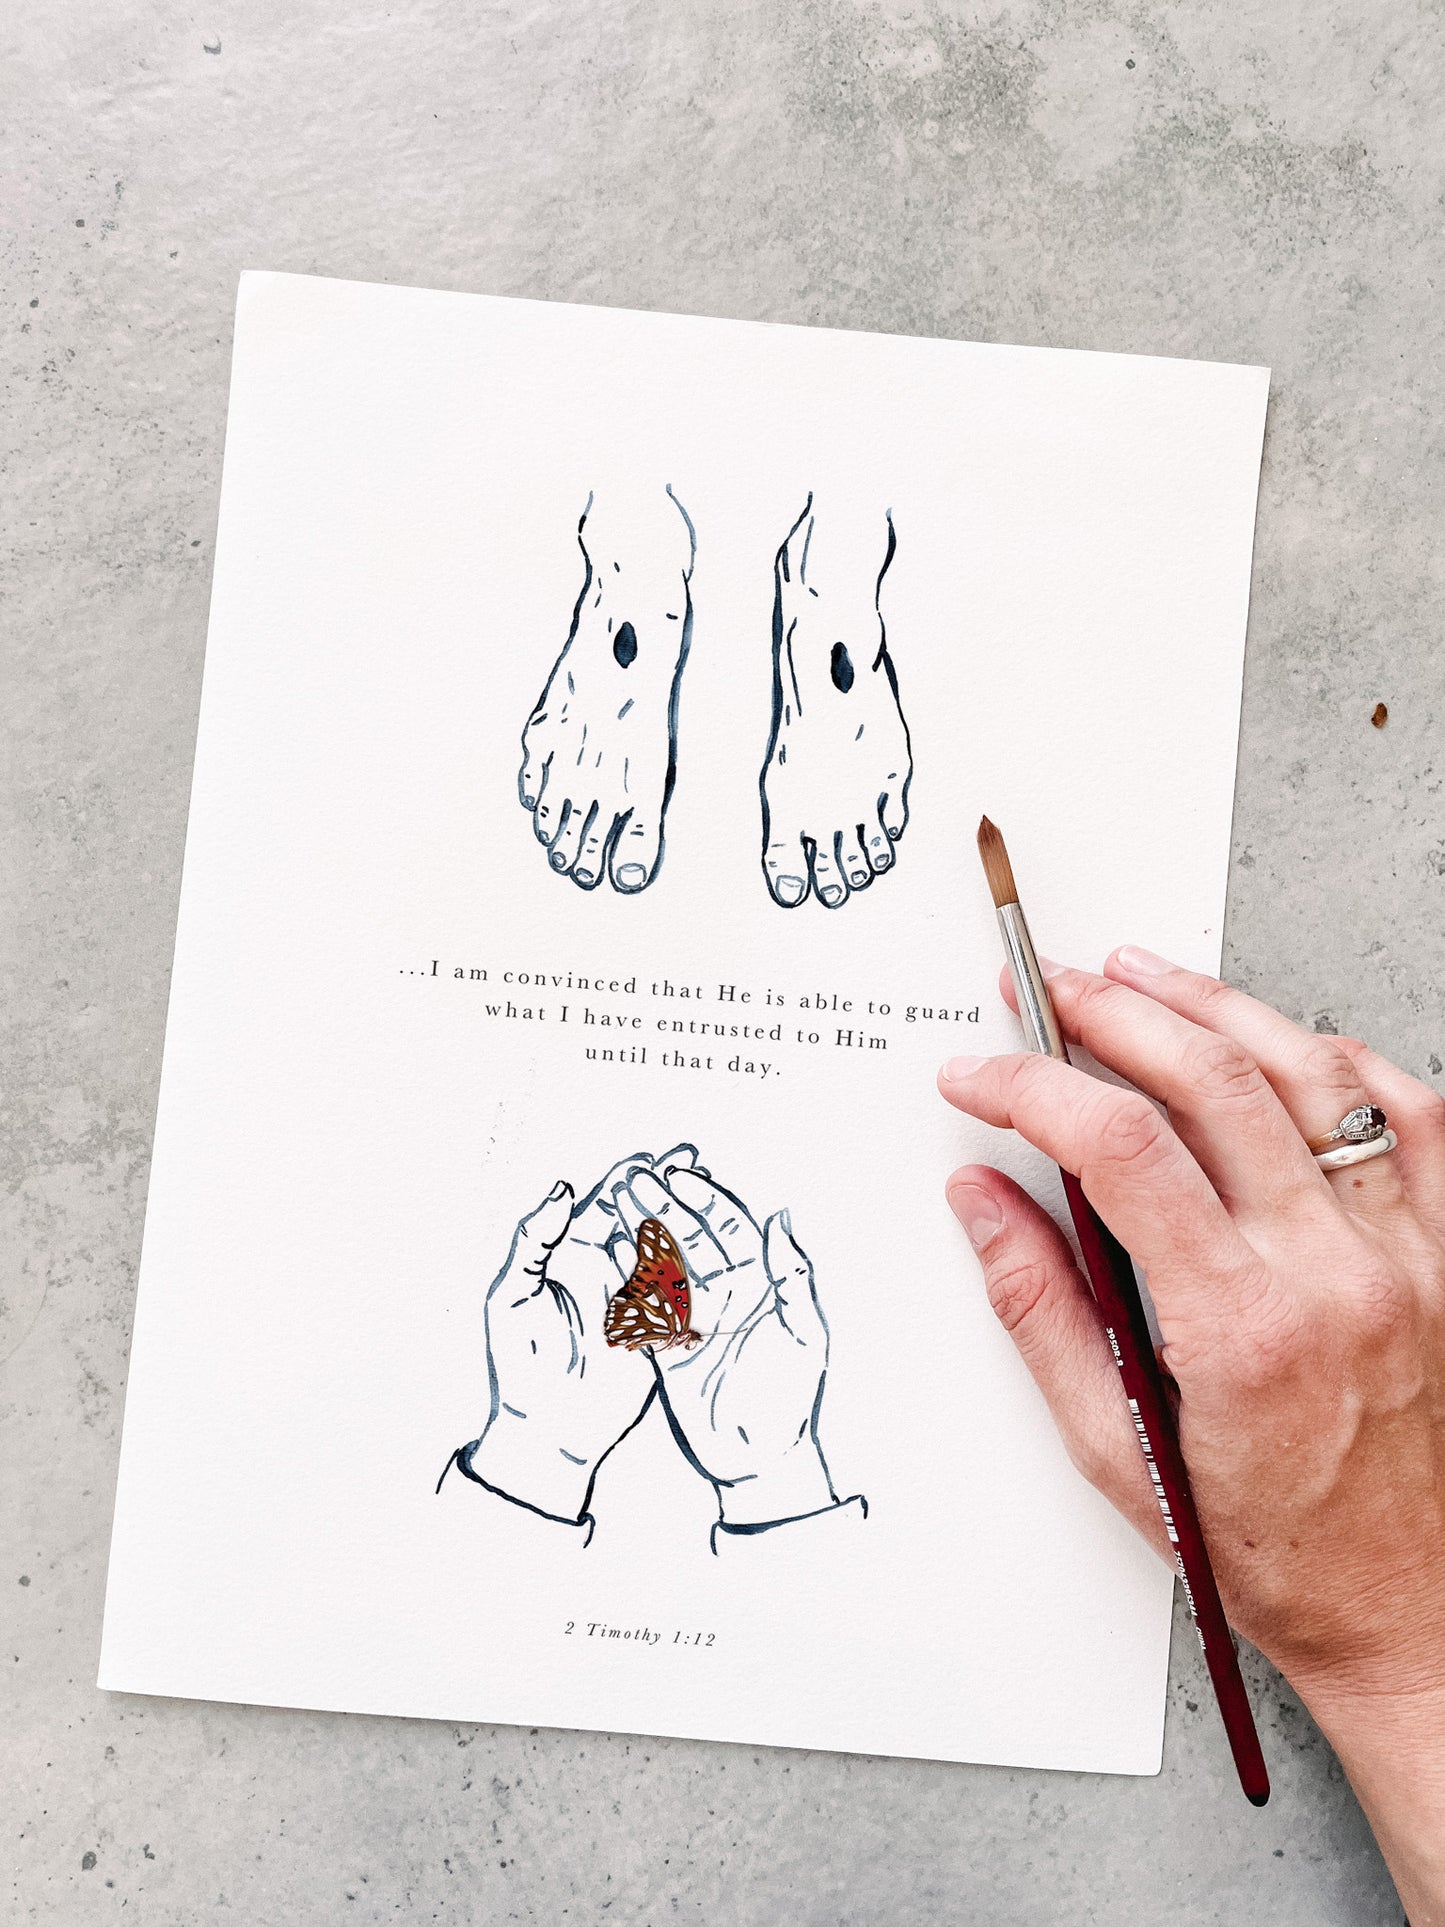 ...I am convinced that He is able to guard
what I have entrusted to Him
until that day.
2 Timothy 1:12
3950R-8